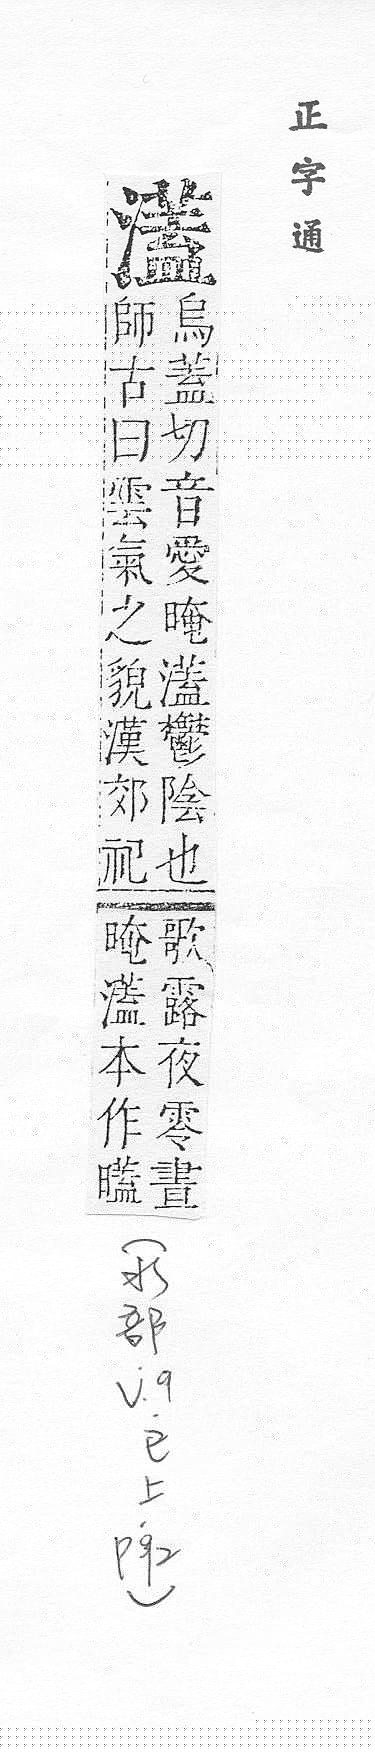 正字通
濭
烏蓋切音愛晻濭鬱陰也
師古曰雲氣之貌漢郊祀
歌露夜零晝
晻濭本作
(水部 V.9 巳上 P42)